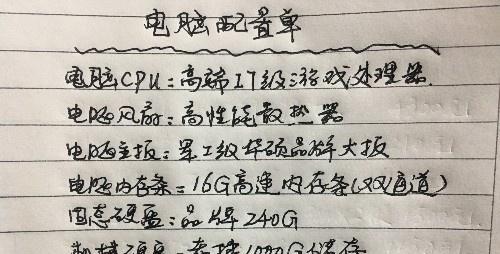 电脑配置单
电脑CPU：高端I7级游戏处理器
电脑风扇：高性能散热器
电脑主板：军工级华硕品牌大板
电脑内存条=16G高速内存条(双通道)
固态硬盘：品牌240G
机械硬盘：